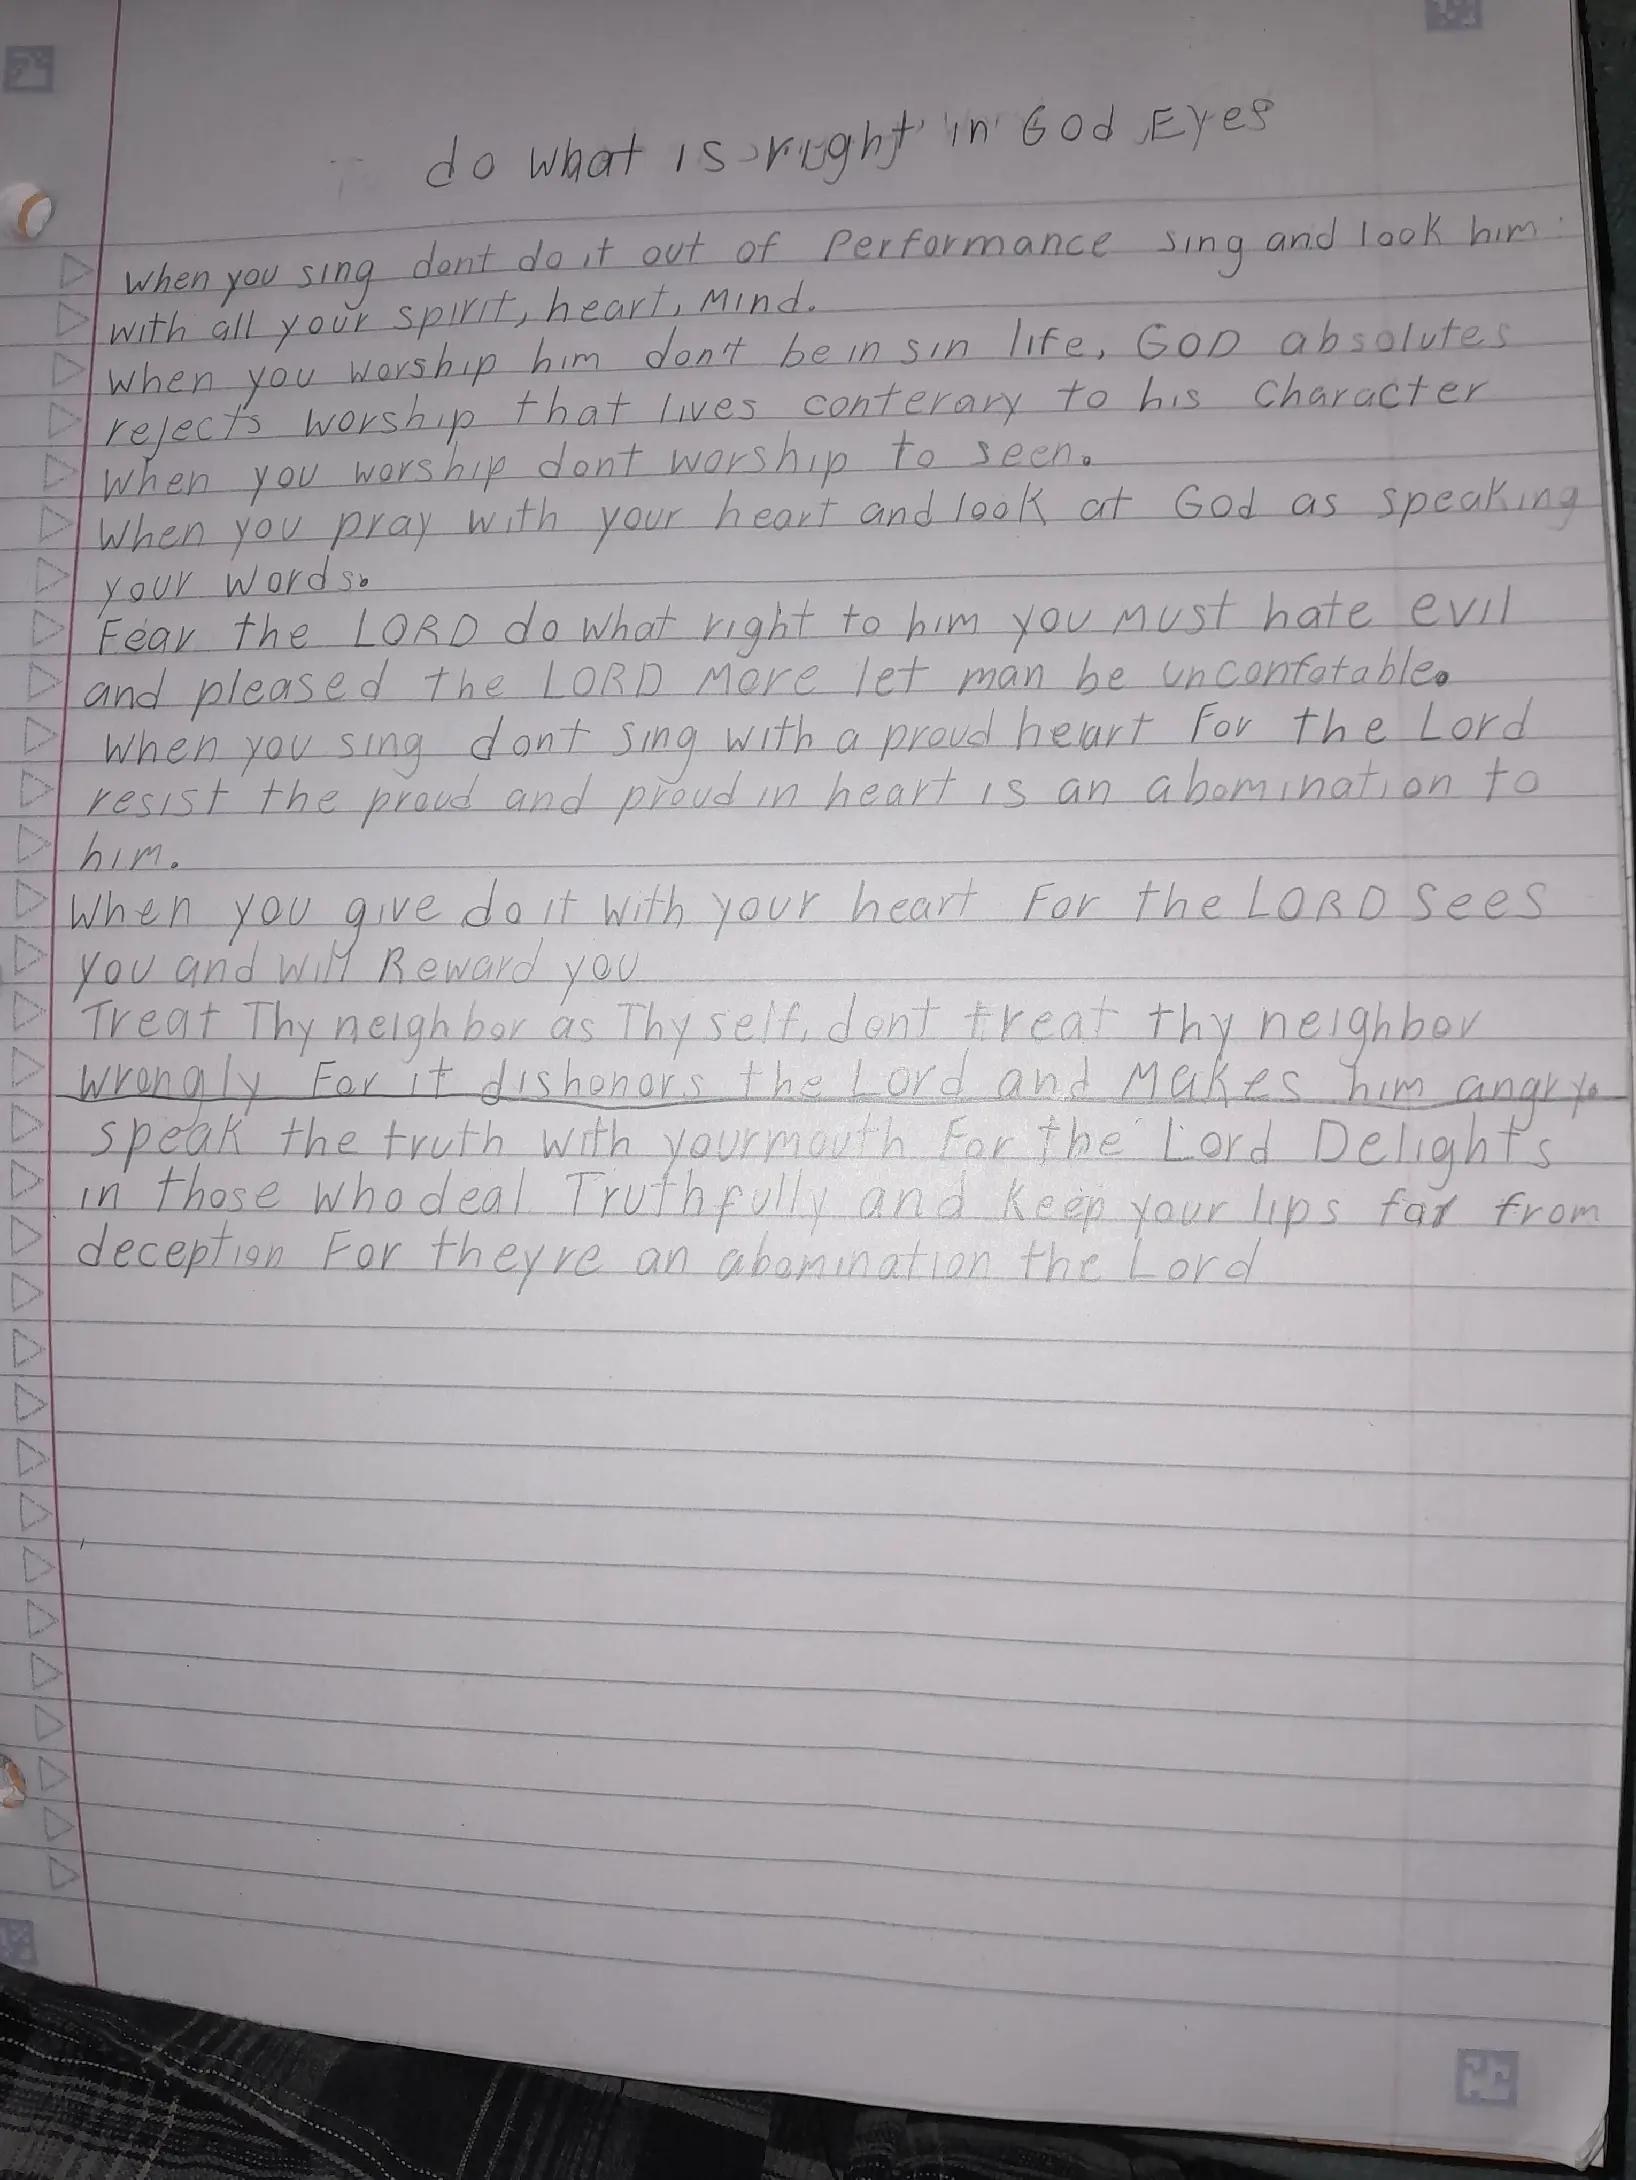 do what is right in God Eyes
When you sing dont do it out of Performance sing and look him
with all your spirit, heart, Mind.
When you worship him don't be in sin life, GOD absolutes
rejects worship that lives conterary to his Character
When you worship dont worship to seen.
When you pray with your heart and look at God as speaking
your words.
Fear the LORD do what right to him you must hate evil
and pleased the LORD More let man be unconfotable.
When you sing dont sing with a proud heart For the Lord
resist the proud and proud in heart is an abomination to
him.
When you give do it with your heart For the LORD Sees
you and will Reward you
Treat Thy neighbor as Thy self, dont treat thy neighbor
wrongly For it dishonors the Lord and Makes him angry.
speak the truth with your mouth For the Lord Delights
in those who deal Truthfully and Keep your lips far from
deception For theyre an abomination the Lord